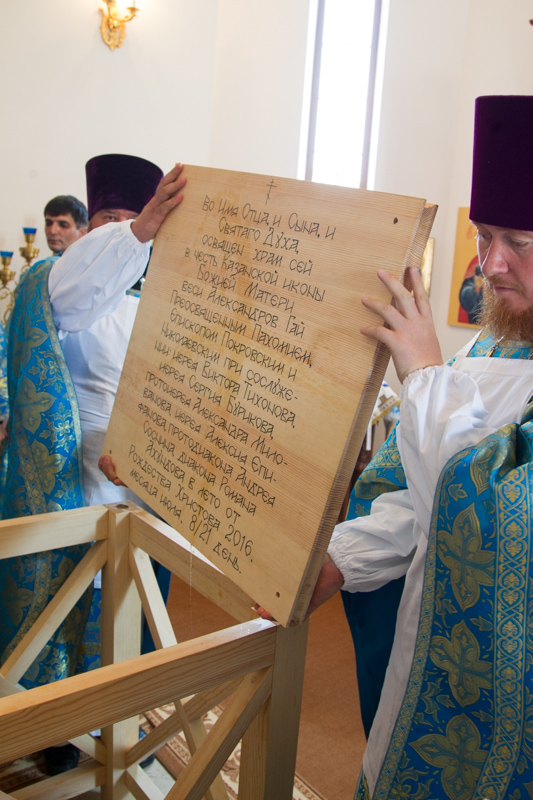 Во имя Отца, и Сына, и
Святаго Духа,
освящен храм сей
в честь Казанской иконы
Божией Матери
веси Александров Гай
Преосвященным Пахомием,
Епископом Покровским и
Николаевским при сослуже-
нии иерея Виктора Тихонова,
иерея Сергия Бурикова,
протоиерея Александра Мило-
ванова, иерея Алексия Епи-
фанова, протодиакона Андрея
диакона Романа
в лето от
Рождества Христова 2016,
месяца июля, 8/21 день.